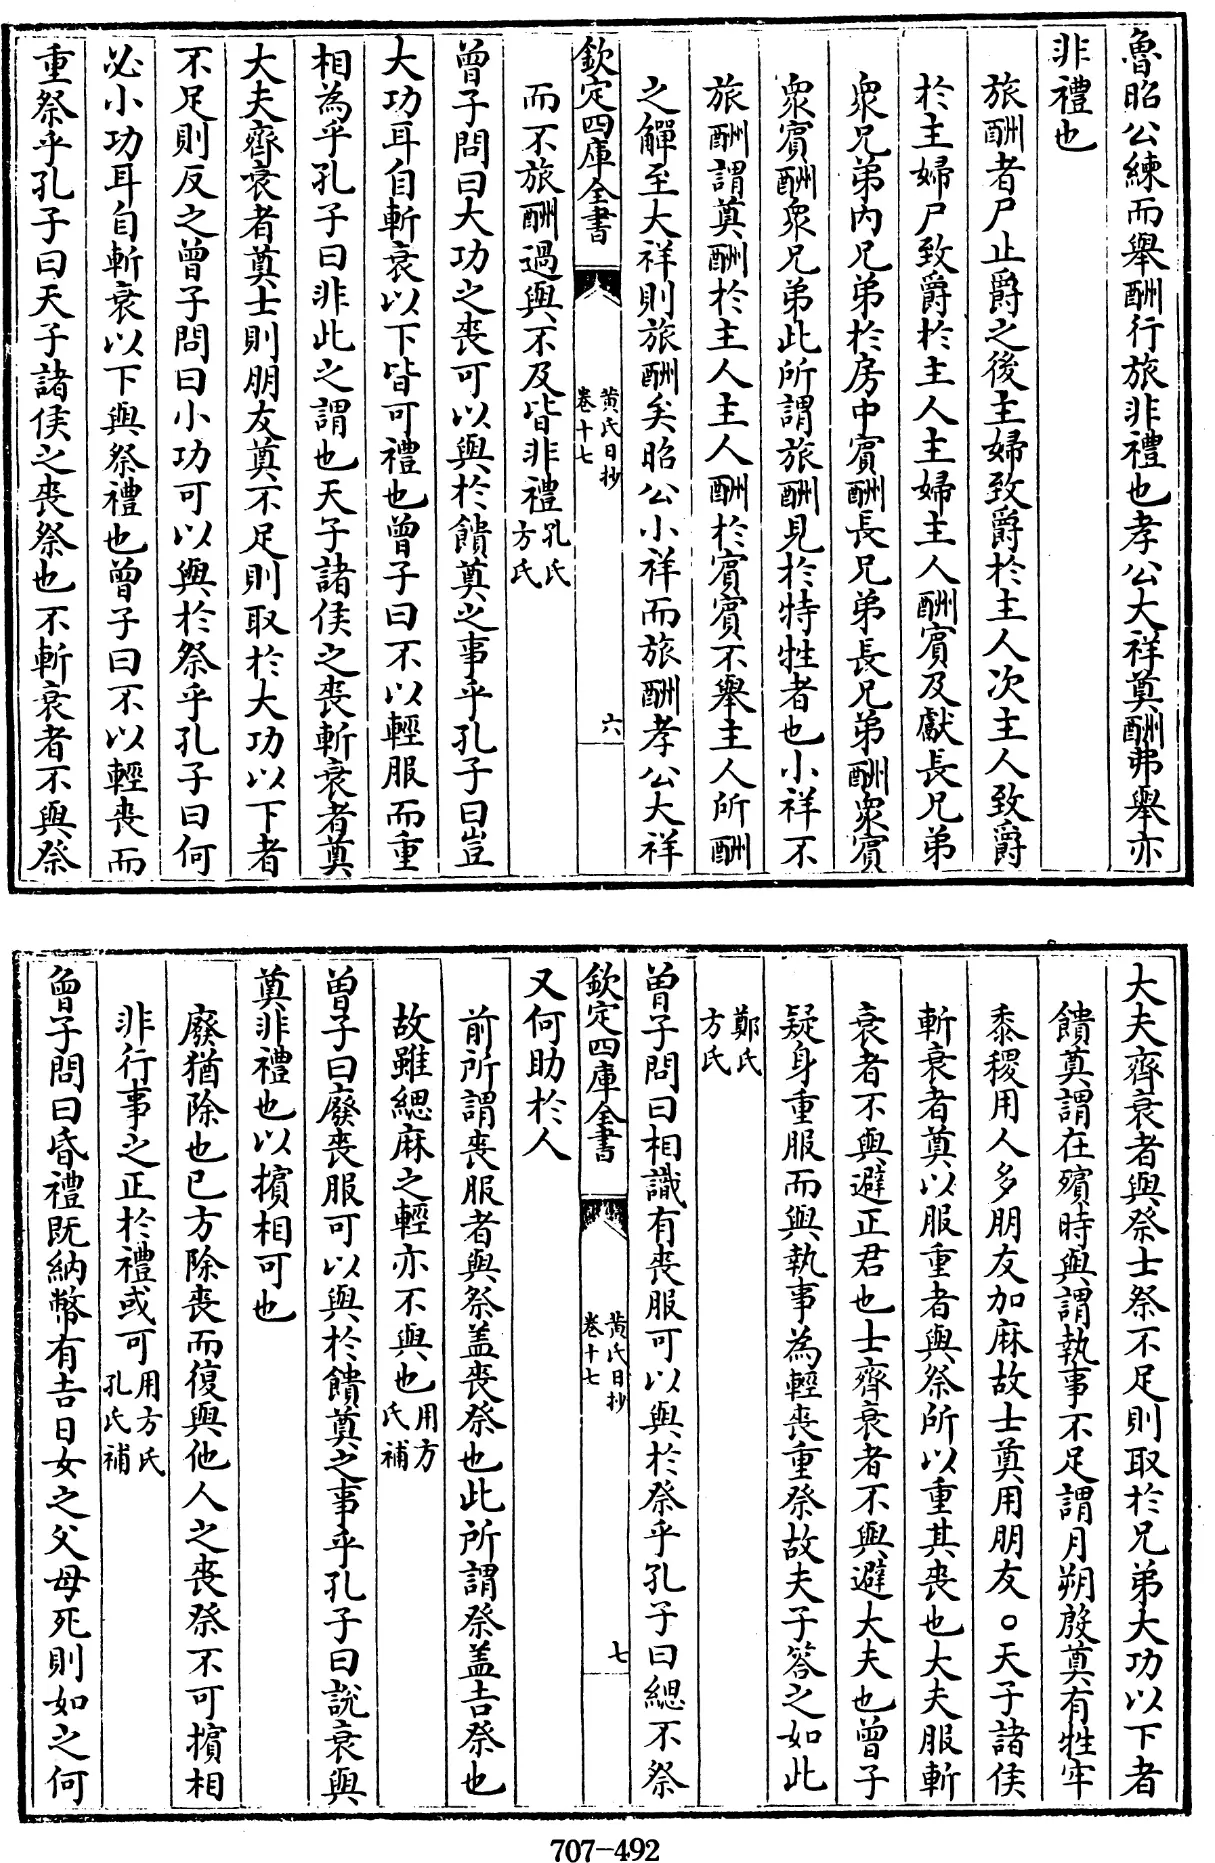 魯昭公練而舉酬行旅非禮也孝公大祥奠酬弗舉亦
非禮也
旅酬者尸止爵之後主婦致爵於主人次主人致爵
於主婦尸致爵於主人主婦主人酬賓及獻長兄弟
衆兄弟内兄弟於房中賓酬長兄弟長兄弟酬衆賓
衆賓酬衆兄弟此所謂旅酬見於特牲者也小祥不
旅酬謂奠酬於主人主人酬於賓賓不舉主人所酬
之觶至大祥則旅酬矣昭公小祥而旅酬孝公大祥
欽定四庫全書
黄氏日抄
卷十七
六
而不旅酬過與不及皆非禮孔氏
方氏
曽子問曰大功之喪可以與於饋奠之事乎孔子曰豈
大功耳自斬衰以下皆可禮也曽子曰不以輕服而重
相為乎孔子曰非此之謂也天子諸侯之喪斬衰者奠
大夫齊衰者奠士則朋友奠不足則取於大功以下者
不足則反之曽子問曰小功可以與於祭乎孔子曰何
必小功耳自斬衰以下與祭禮也曽子曰不以輕喪而
重祭乎孔子曰天子諸侯之喪祭也不斬衰者不與祭
大夫齊衰者與祭士祭不足則取於兄弟大功以下者
饋奠謂在殯時與謂執事不足謂月朔殷奠有牲牢
黍稷用人多朋友加麻故士奠用朋友○天子諸侯
斬衰者奠以服重者與祭所以重其喪也大夫服斬
衰者不與避正君也士齊衰者不與避大夫也曽子
疑身重服而與執事為輕喪重祭故夫子答之如此
鄭氏
方氏
曽子問曰相識有喪服可以與於祭乎孔子曰緦不祭
欽定四庫全書
黄氏日抄
卷十七
七
又何助於人
前所謂喪服者與祭盖喪祭也此所謂祭盖吉祭也
故雖緦麻之輕亦不與也用方
氏補
曽子曰廢喪服可以與於饋奠之事乎孔子曰說衰與
奠非禮也以擯相可也
廢猶除也已方除喪而復與他人之喪祭不可擯相
非行事之正於禮或可用方氏
孔氏補
曽子問曰昏禮既納幣有吉日女之父母死則如之何
707-492